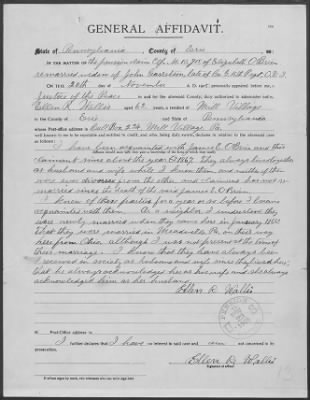 GENERAL AFFIDAVIT.
State of Pennsylvania, County of Erie, ss:
IN THE MATTER OF the pension claim Ctf. No. of Elizabeth O'Brien
remarried widow of John late of Co. E 128 Regt. O.V.I.
ON THIS 20th day of November A. D. personally appeared before me, a
Justice of the Peace in and for the aforesaid County, duly authorized to administer oaths,
Ellen R. Wallis aged 62 years, a resident of Mill Village
in the County of Erie and State of Pennsylvania
whose Post-office address is Mill Village Pa.
well known to me to be reputable and entitled to credit, and who, being duly sworn, declares in relation to the aforesaid case
as follows:
I have been acquainted with James E. O'Brien and this
claimant since about the year 1867. They always lived together
as husband and wife while I knew them and neither of them
were ever divorced from the other and claimant has not re-
married since the death of the said James E. O'Brien
I knew of these parties for a year or so before I became
acquainted with them. As a neighbor I understood they
were newly married when they came here in January
That they were married in Meadville Pa on their way
here from Ohio, although I was not present at the time of
their marriage. I know that they have always been
received in society as husband and wife since they lived here,
that he always acknowledged her as his wife and she always
acknowledged him as her husband.
Ellen R. Wallis
Post-office address is
I further declare that I have no interest in said case and am not concerned in
its prosecution.
Ellen R. Wallis